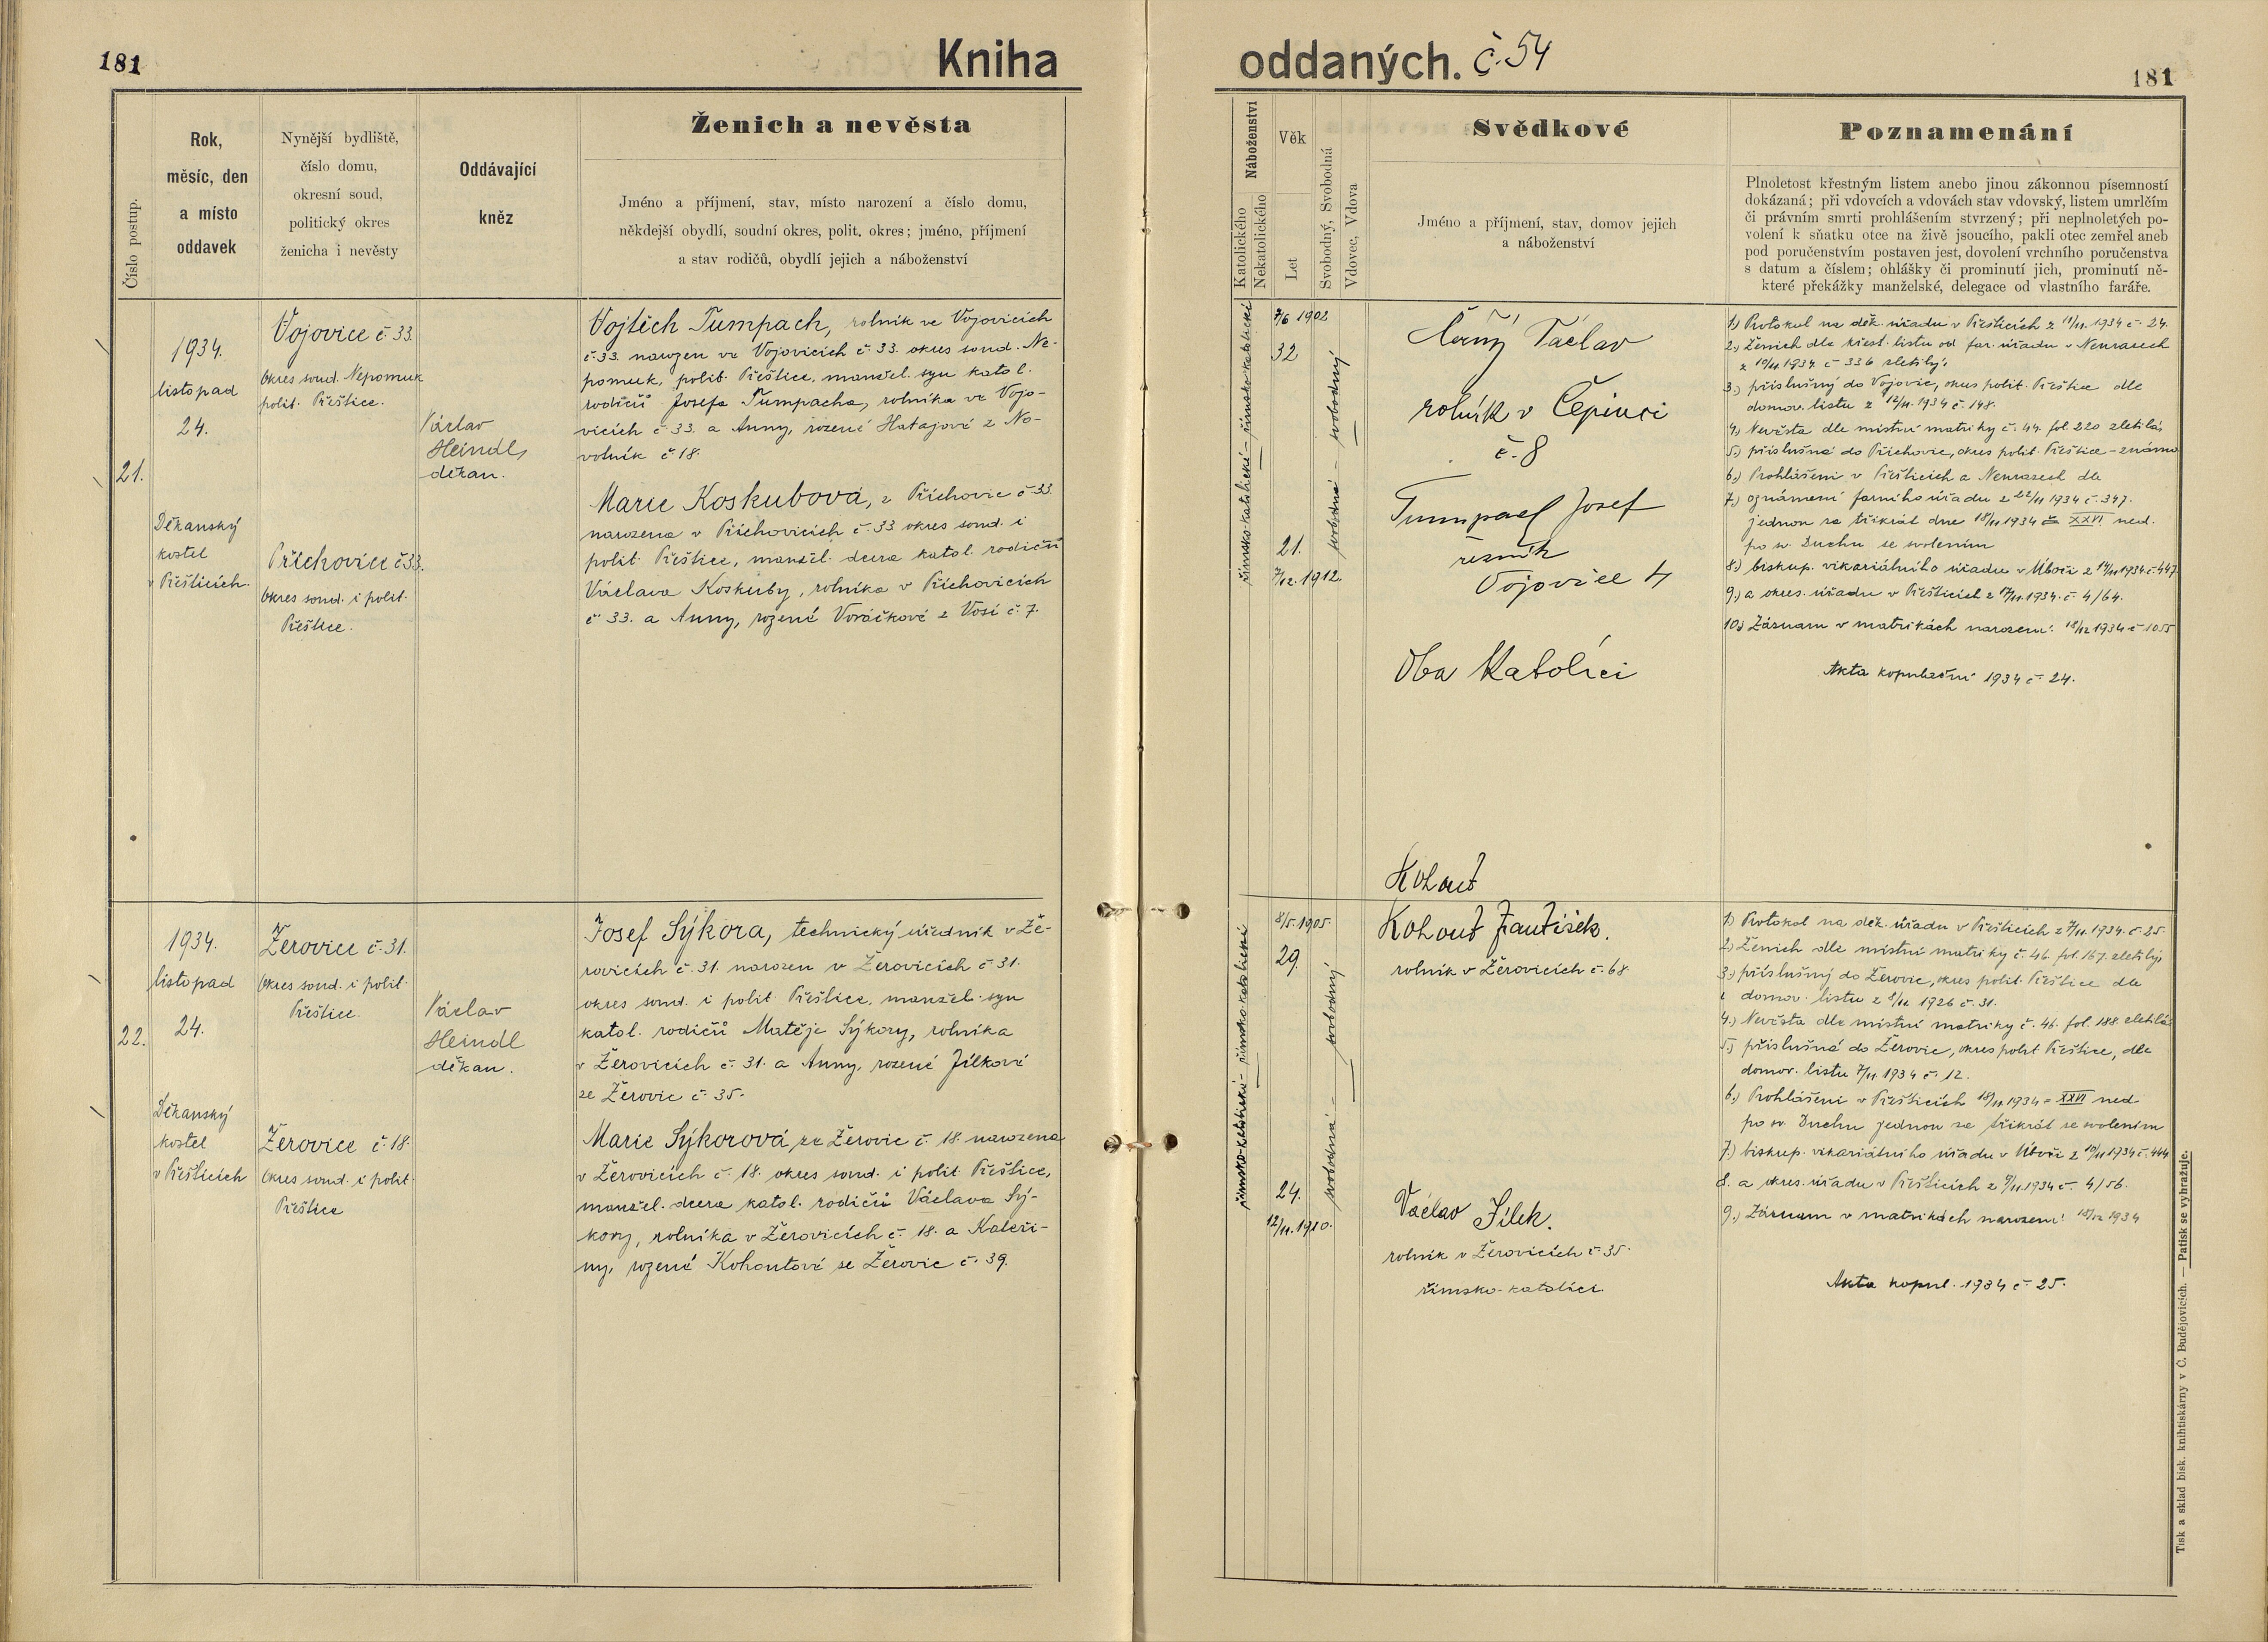 181
Kniha
Rok,
měsíc, den
a místo
oddavek
Číslo postup.
Nynější bydliště,
číslo domu,
okresní soud,
politický okres
ženicha i nevěsty
Oddávající
kněz
Ženich a nevěsta
Jméno a příjmení, stav, místo narození a číslo domu,
někdejší obydlí, soudní okres, polit. okres; jméno, příjmení
a stav rodičů, obydlí jejich a náboženství
21.
1934.
listopad
24.
Děkanský
kostel
v Přešticích.
Vojovice č 33.
Okres soud. Nepomuk
polit. Přeštice.
Příchovice č 33.
Okres soud. i polit.
Přeštice.
Václav
Heindl,
děkan.
Vojtěch Tumpach, rolník ve Vojovicích
č. 33. narozen ve Vojovicích č. 33. okres soud. Ne-
pomuk, polit. Přeštice, manžel. syn katol.
rodičů Josefa Tumpacha, rolníka ve Vojo-
vicích č 33. a Anny, rozené Hatajové z No-
votník č 18.
Marie Koskubová, z Příchovic č 33.
narozena v Příchovicích č. 33 okres soud. i
polit. Přeštice, manžel. dcera katol. rodičů
Václava Koskuby, rolníka v Příchovicích
č 33. a Anny, rozené Voráčkové z Vosí č. 7.
22.
1934.
listopad
24.
Děkanský
kostel
v Přešticích
Žerovice č. 31.
Okres soud. i polit.
Přeštice.
Žerovice č. 18.
Okres soud. i polit.
Přeštice
Václav
Heindl
děkan.
Josef Sýkora, technický úředník v Že-
rovicích č. 31. narozen v Žerovicích č 31.
okres soud. i polit. Přeštice, manžel. syn
katol. rodičů Matěje Sýkory, rolníka
v Žerovicích č. 31. a Anny, rozené Jílkové
ze Žerovic č 35.
Marie Sýkorová, ze Žerovic č. 18. narozena
v Žerovicích č. 18. okres soud. i polit. Přeštice,
manžel. dcera katol. rodičů Václava Sý-
kory, rolníka v Žerovicích č. 18. a Kateři-
ny, rozené Kohoutové ze Žerovic č. 39.
oddaných. č. 54
181
Náboženství
Katolického
Nekatolického
Věk
Let
Svobodný, Svobodná
Vdovec, Vdova
Svědkové
Jméno a příjmení, stav, domov jejich
a náboženství
Poznamenání
Plnoletost křestným listem anebo jinou zákonnou písemností
dokázaná; při vdovcích a vdovách stav vdovský, listem umrlčím
či právním smrti prohlášením stvrzený; při neplnoletých po-
volení k sňatku otce na živě jsoucího, pakli otec zemřel aneb
pod poručenstvím postaven jest, dovolení vrchního poručenstva
s datum a číslem; ohlášky či prominutí jich, prominutí ně-
které překážky manželské, delegace od vlastního faráře.
římsko-katolické - římsko-katolické
7/6 1902
32
21.
7/12. 1912.
svobodná - svobodný
Černý Václav
rolník v Čepinci
č. 8
Tumpach Josef
řezník
Vojovice 4
Oba Katolíci
1) Protokol na děk. úřadu v Přešticích z 11/11. 1934 č. 24.
2.) Ženich dle křest. listu od far. úřadu v Neurazech
z 10/11. 1934 č 336 zletilý.
3.) příslušný do Vojovic, okres polit. Přeštice dle
domov. listu z 12/11. 1934 č. 148.
4.) Nevěsta dle místní matriky č. 44. fol. 220 zletilá,
5.) příslušná do Příchovic, okres polit. Přeštice - známa
6.) Prohlášeni v Přešticích a Neurazech dle
7.) oznámení farního úřadu z 22/11 1934 č. 347.
jednou za třikrát dne 18/11 1934 = XXVI ned.
po sv. Duchu se svolením
8.) biskup. vikariátního úřadu v Úboči z 14/11 1934 č. 447
9.) a okres. úřadu v Přešticích z 17/11. 1934. č. 4/64.
10.) Záznam v matrikách narození 18/12 1934 č 1055
Akta kopulační 1934 č 24.
Kohout
římsko-katolická - římsko-katolické
8/5. 1905.
29.
24.
12/11. 1910.
svobodná - svobodný
Kohout František.
rolník v Žerovicích č. 68
Václav Jílek.
rolník v Žerovicích č. 35.
římsko-katolíci.
1.) Protokol na děk. úřadu v Přešticích z 7/11. 1934. č. 25.
2.) Ženich dle místní matriky č. 46. fol. 167. zletilý,
3.) příslušný do Žerovic, okres polit. Přeštice dle
domov. listu z 8/11 1926 č. 31.
4.) Nevěsta dle místní matriky č. 46. fol. 188. zletilá
5.) příslušná do Žerovic, okres polit Přeštice, dle
domov. listu 7/11. 1934 č. 12.
6.) Prohlášeni v Přešticích 18/11. 1934 = XXVI ned.
po sv. Duchu jednou za třikrát se svolením
7.) biskup. vikariátního úřadu v Úboči z 10/11 1934 č. 444
8. a okres. úřadu v Přešticích z 9/11. 1934 č. 4/56.
9.) Záznam v matrikách narození 18/12 1934
Akta kopul. 1934 č 25.
Tisk a sklad bisk. knihtiskárny v Č. Budějovicích. — Patisk se vyhražuje.